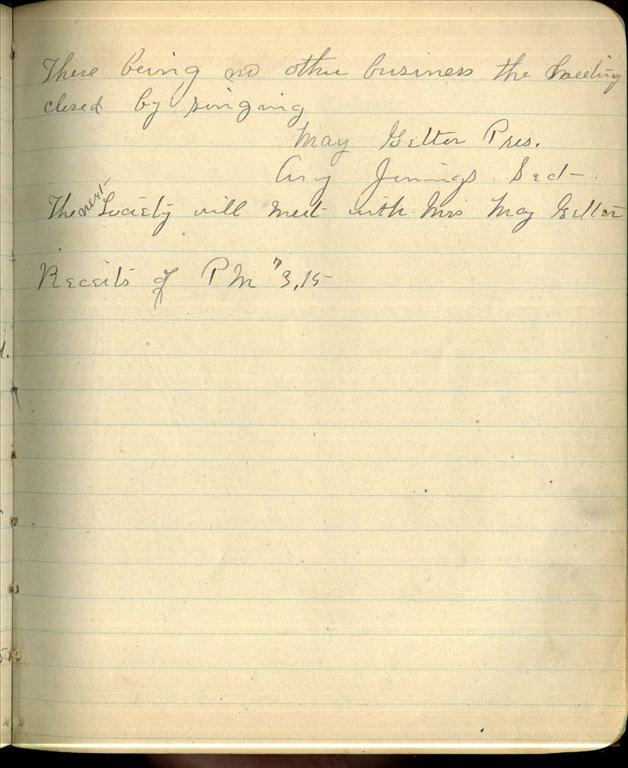 There being no other business the meeting
closed by singing
May Getter Pres.
Jennings Sect-
The next Society will meet with Mrs May Getter
Receits of P M "3,15